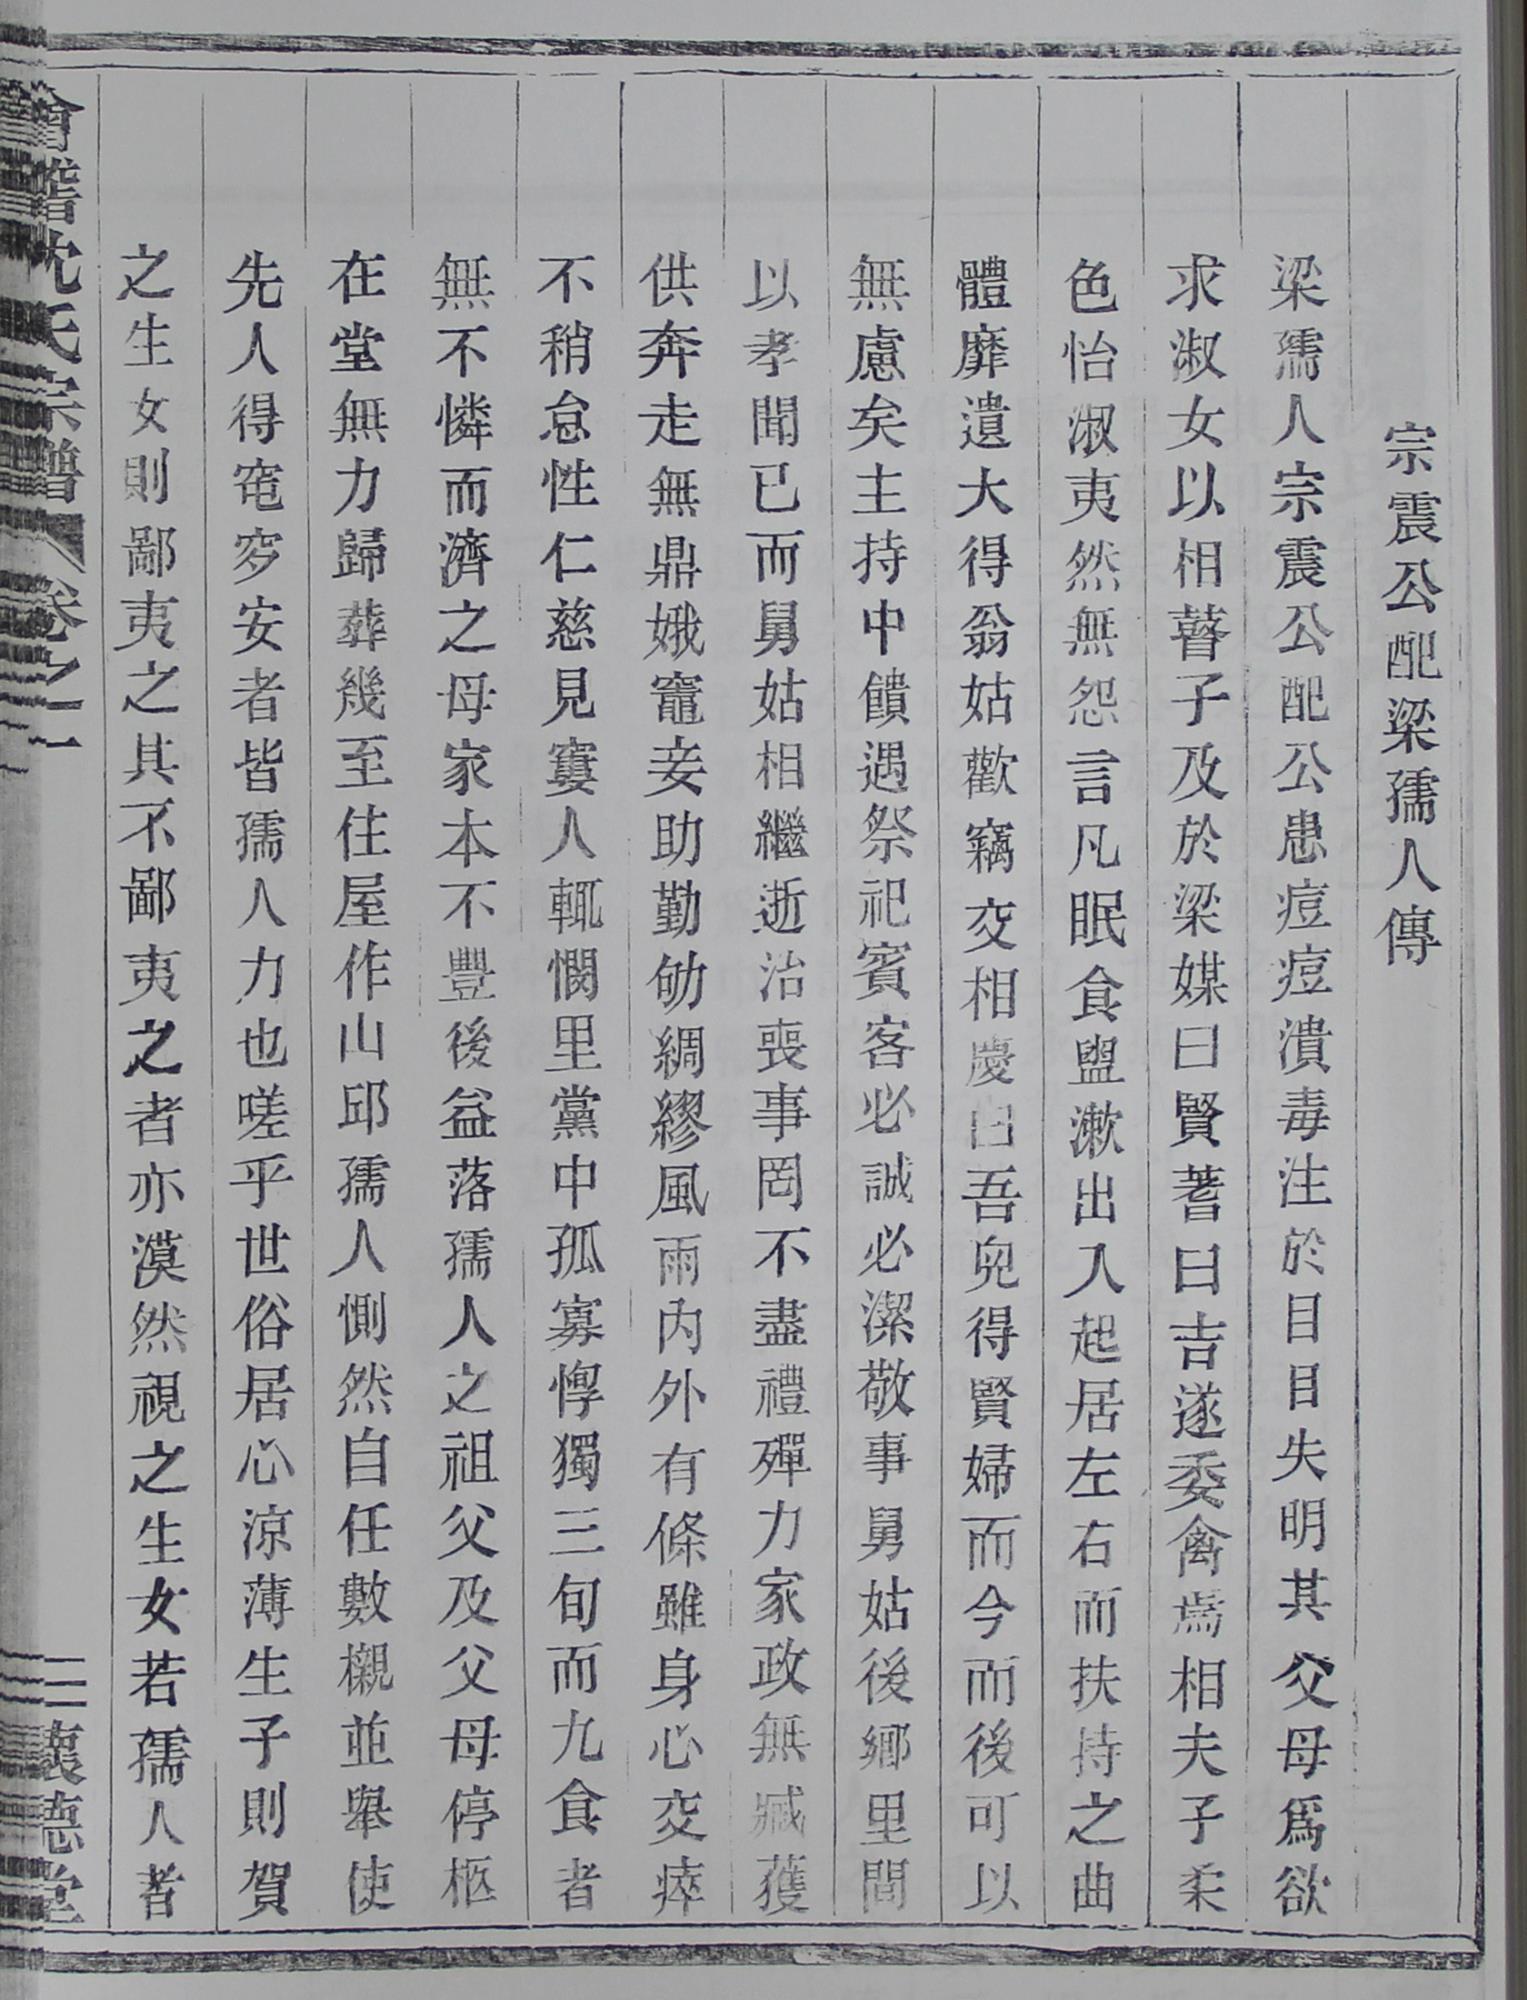 宗震公配梁孺人傳
梁孺人宗震公配公患痘痘潰毒注於目目失明其父母爲欲
求淑女以相瞽子及於梁媒曰賢蓍曰吉遂委禽焉相夫子柔
色怡淑夷然無怨言凡眠食盥漱出入起居左右而扶持之曲
體靡遺大得翁姑歡竊交相慶曰吾兒得賢婦而今而後可以
無慮矣主持中饋遇祭祀賓客必誠必潔敬事舅姑後鄉里間
以孝聞已而舅姑相繼逝治喪事罔不盡禮殫力家政無臧獲
供奔走無鼎娥竈妾助勤劬綢繆風雨內外有條雖身心交瘁
不稍怠性仁慈見窶人輒憫里黨中孤寡惸獨三旬而九食者
無不憐而濟之母家本不豐後益落孺人之祖父及父母停柩
在堂無力歸葬幾至住屋作山邱孺人惻然自任數櫬並舉使
先人得窀穸安者皆孺人力也嗟乎世俗居心涼薄生子則賀
之生女則鄙夷之其不鄙夷之者亦漠然視之生女若孺人者
會稽沈氏宗譜 卷之一 二 懷德堂